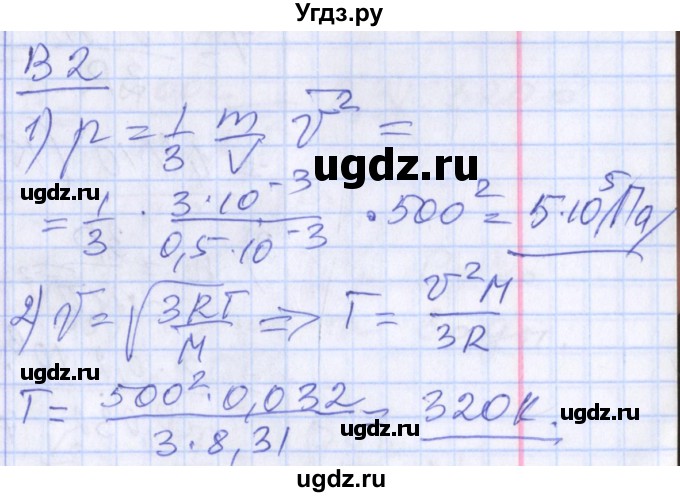 Угдз.ру
В 2
1) p = 1/3 m/V v̅² =
ugdz.ru
ugdz.ru
= 1/3 · 3·10⁻³/0,5·10⁻³ · 500² = 5·10⁵ Па
ugdz.ru
2) v = √(3RT/M) => T = v²M/3R
ugdz.ru
ugdz.ru
T = 500²·0,032/3·8,31 = 320К.
ugdz.ru
ugdz.ru